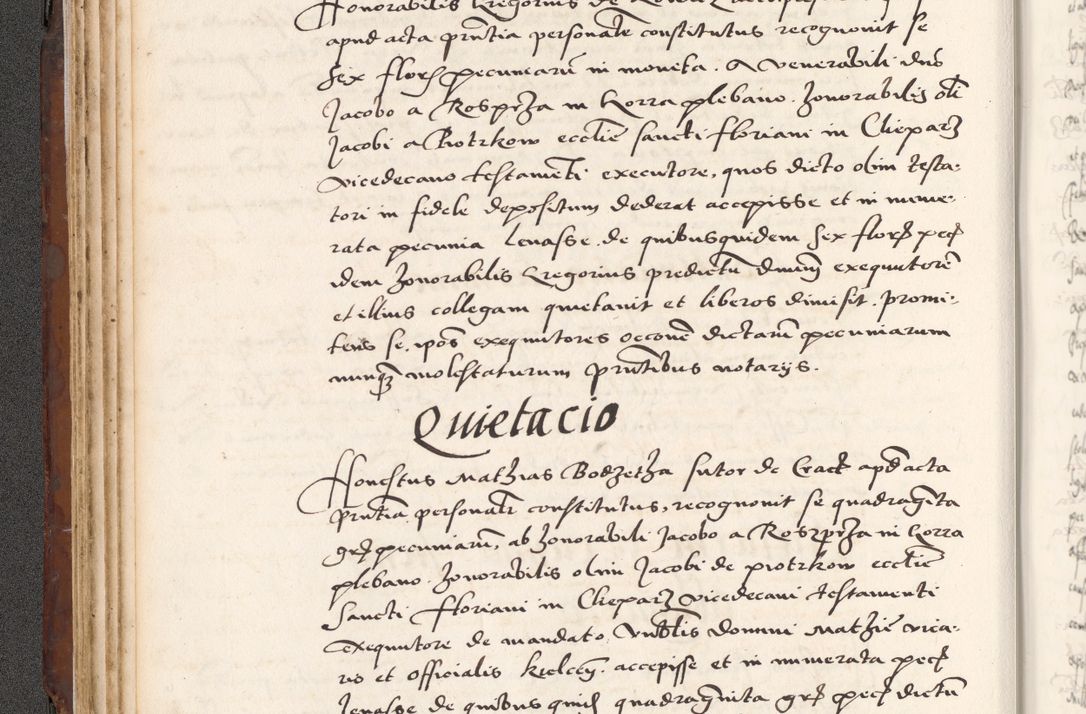 Honorabilis Gregorius de
apud acta pñtia personalr constitutus recognovit se
sex floř pecuniarũ in moneta. A venerabili dño
Jacobo a Rosprza in Gorra plebano. honorabilis oli
Jacobi a Piotrkow ecctie sancti floriani in Cleparz
vicedecano testamẽti executore, quos dicto olim testa-
tori in fidele depositum dederat accepisse et in nume-
rata pecunia levasse. de quibusquidem sex floř pecč
idem honorabilis Gregorius predictũ dnum exequutorẽ
et illius collegam quietavit et liberos dimisit. promi-
tens se. ipõs exequutores occoñe dictarũ pecuniarum
nunq molestaturum pñtibus notarijs.
Quietacio
Honestus Mathias Bodzetha sutor de Crač apud acta
pñtia personalr constitutus, recognovit se quadragita
grž pecuniarũ, ab honorabili Jacobo a Roszprza in Gorra
plebano. honorabilis olim Jacobi de piotrkow ecctie
Sancti floriani in Cleparz vicedecani testamenti
Exequutore de mandato Vnblis domini Mathie vica-
rii et officialis kielceñ. accepisse et in numerata pecč
levasse de quibus quidẽ quadraginta grž pecč dictũ